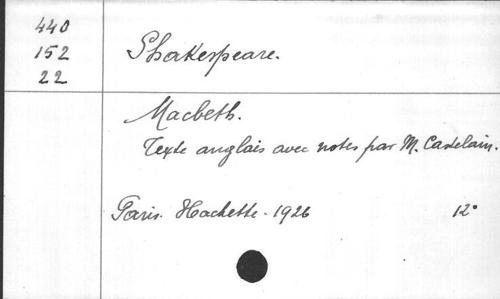 440
152
22
Shakespeare.
Macbeth.
Texte anglais avec notes par M. Castelain.
Paris. Hachette - 1926 12°